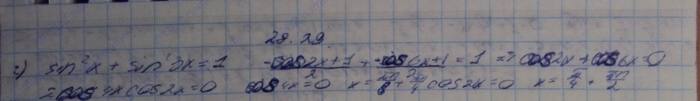 28.29.
2) sin²x + sin²3x = 1   (-cos2x+1)/2 + (-cos6x+1)/2 = 1 => cos2x + cos6x = 0
2cos4xcos2x=0   cos4x=0   x = π/8 + πn/4   cos2x=0   x = π/4 + πn/2